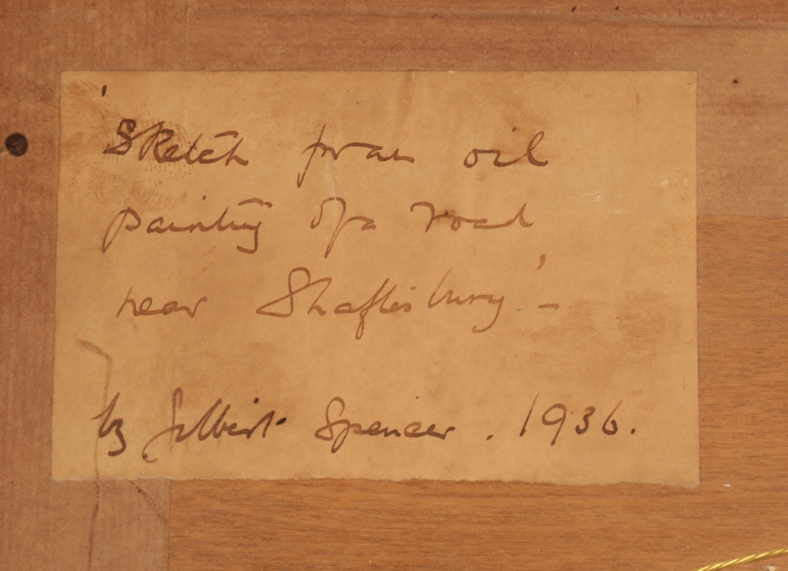 'Sketch for an oil
painting of a road
near Shaftesbury' -
by Gilbert Spencer . 1936.